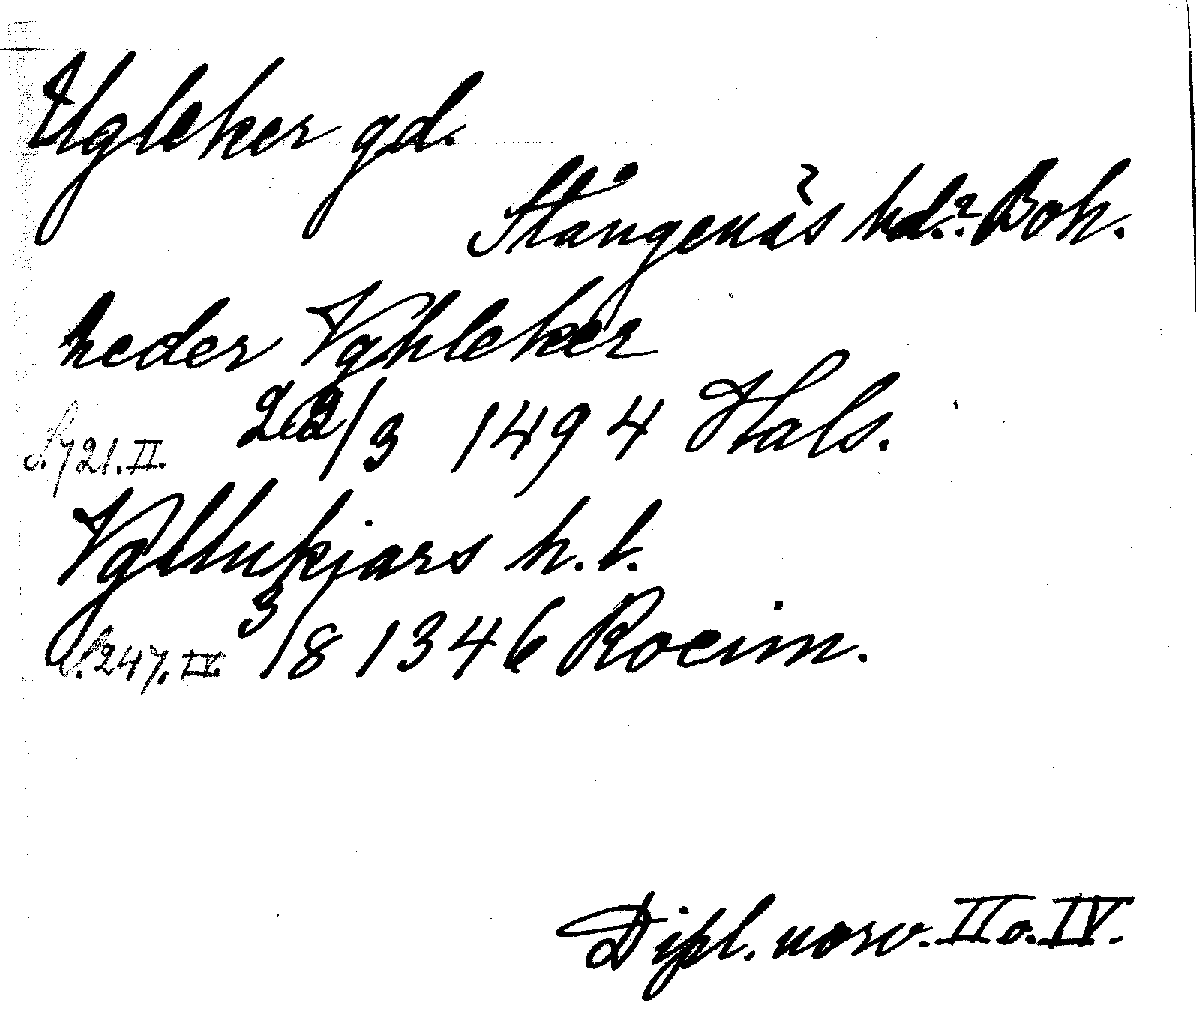 Ugleker gd.
Stångenäs hd.? Boh.
heder Vghleker
22/3 1494 Hals.
S. 721. II.
Vgllukjars h. l.
S. 247. IV. 3/8 1346 Roeim.
Dipl. norv. II o. IV.